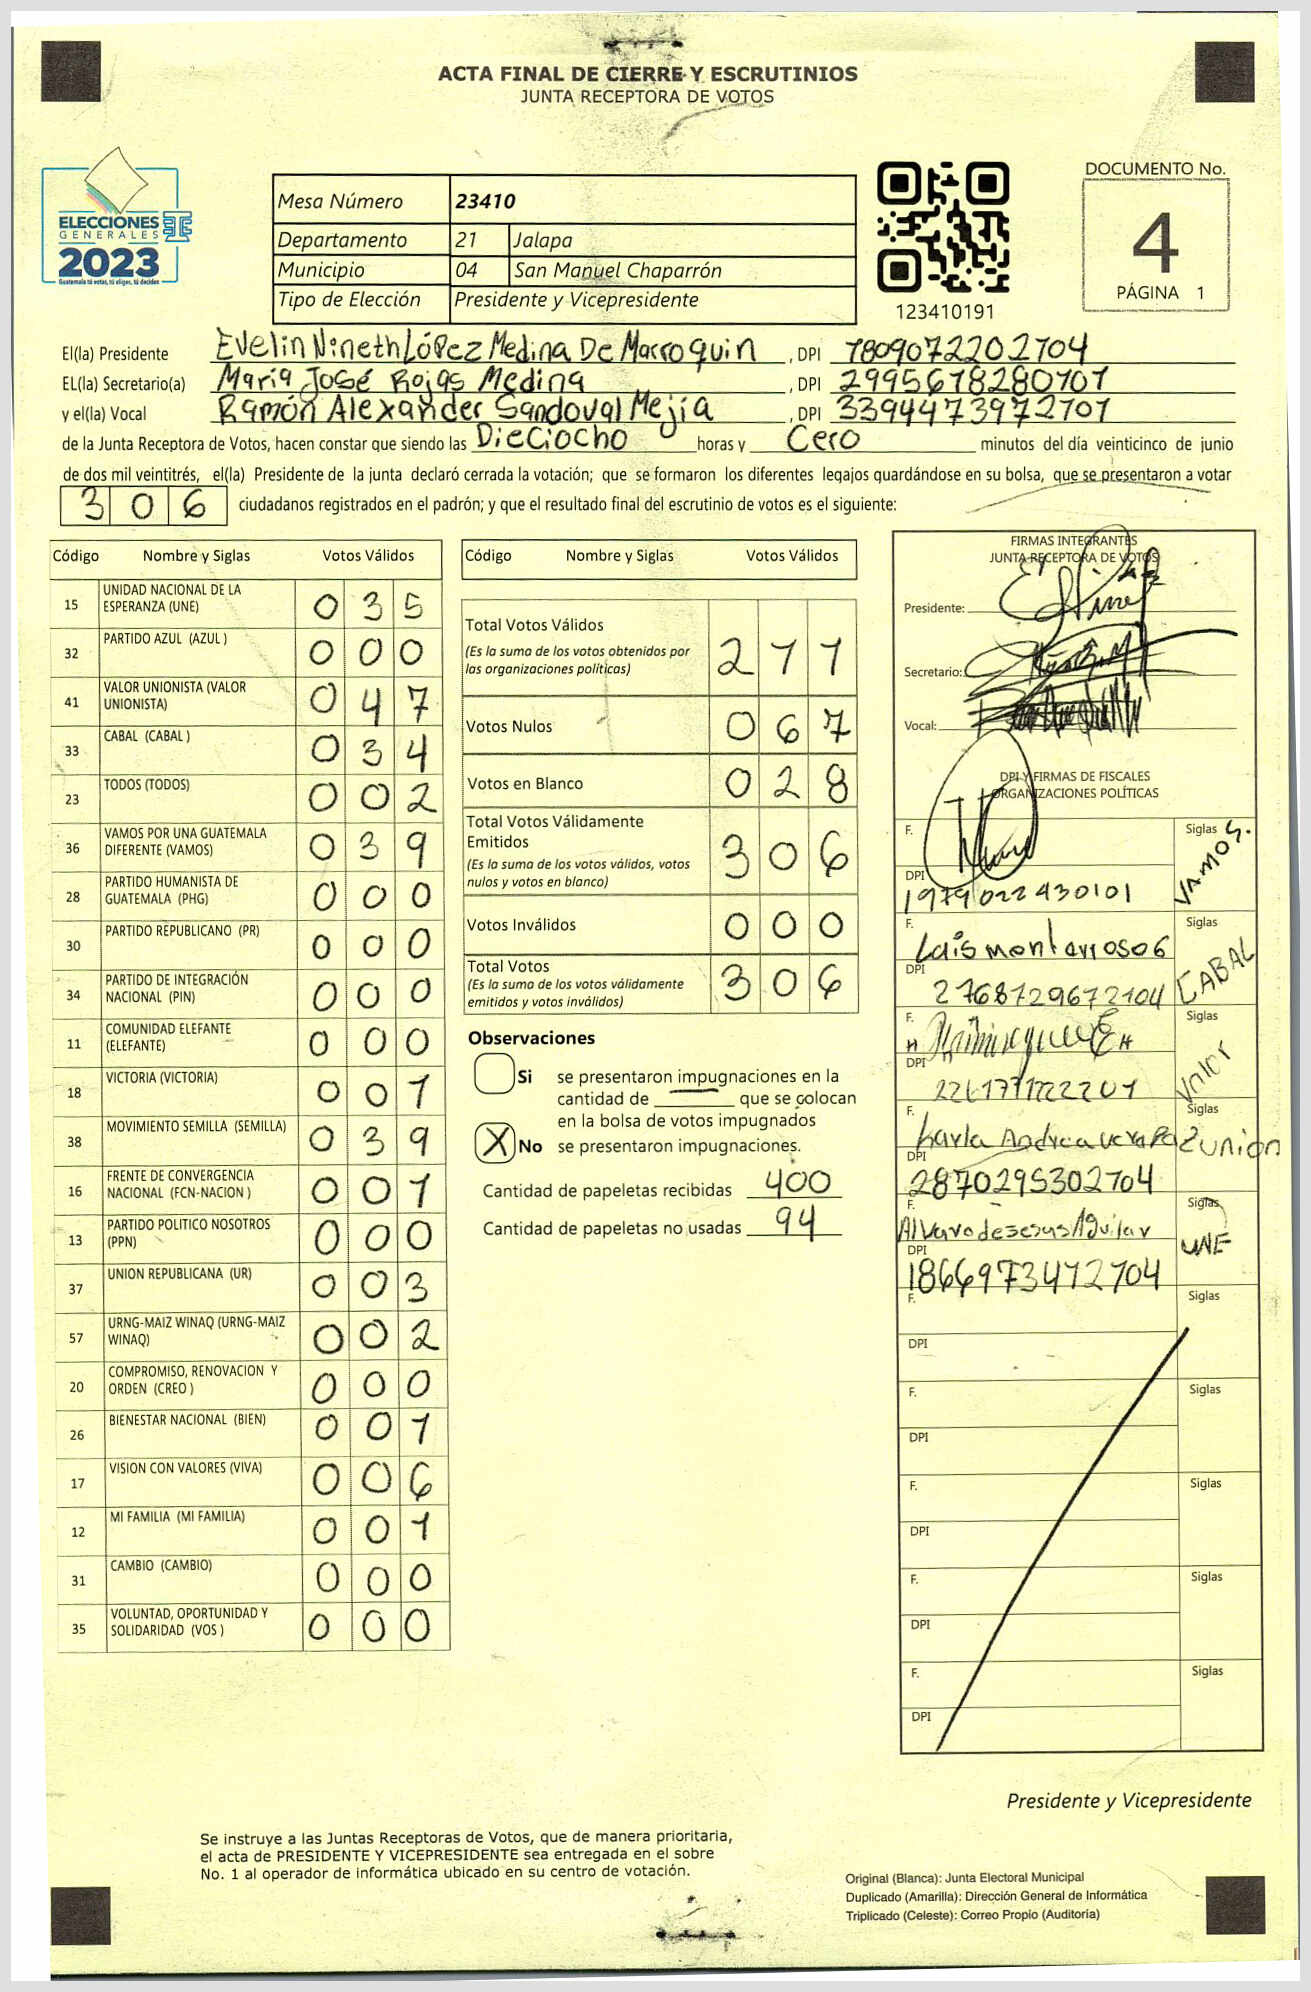 ACTA FINAL DE CIERRE Y ESCRUTINIOS
JUNTA RECEPTORA DE VOTOS
ELECCIONES
GENERALES
2023
Guatemala tú votas, tú eliges, tú decides
Mesa Número 23410
Departamento 21 Jalapa
Municipio 04 San Manuel Chaparrón
Tipo de Elección Presidente y Vicepresidente
123410191
DOCUMENTO No.
4
PÁGINA 1
El(la) Presidente Evelin Nineth López Medina De Marroquin, DPI 7809072202704
EL(la) Secretario(a) María José Rojas Medina, DPI 2995678280701
y el(la) Vocal Ramón Alexander Sandoval Mejía, DPI 3394473972701
de la Junta Receptora de Votos, hacen constar que siendo las Dieciocho horas y Cero minutos del día veinticinco de junio
de dos mil veintitrés, el(la) Presidente de la junta declaró cerrada la votación; que se formaron los diferentes legajos guardándose en su bolsa, que se presentaron a votar
306 ciudadanos registrados en el padrón; y que el resultado final del escrutinio de votos es el siguiente:
Código Nombre y Siglas Votos Válidos
15 UNIDAD NACIONAL DE LA ESPERANZA (UNE) 035
32 PARTIDO AZUL (AZUL ) 000
41 VALOR UNIONISTA (VALOR UNIONISTA) 047
33 CABAL (CABAL ) 034
23 TODOS (TODOS) 002
36 VAMOS POR UNA GUATEMALA DIFERENTE (VAMOS) 039
28 PARTIDO HUMANISTA DE GUATEMALA (PHG) 000
30 PARTIDO REPUBLICANO (PR) 000
34 PARTIDO DE INTEGRACIÓN NACIONAL (PIN) 000
11 COMUNIDAD ELEFANTE (ELEFANTE) 000
18 VICTORIA (VICTORIA) 001
38 MOVIMIENTO SEMILLA (SEMILLA) 039
16 FRENTE DE CONVERGENCIA NACIONAL (FCN-NACION ) 001
13 PARTIDO POLITICO NOSOTROS (PPN) 000
37 UNION REPUBLICANA (UR) 003
57 URNG-MAIZ WINAQ (URNG-MAIZ WINAQ) 002
20 COMPROMISO, RENOVACION Y ORDEN (CREO ) 000
26 BIENESTAR NACIONAL (BIEN) 001
17 VISION CON VALORES (VIVA) 006
12 MI FAMILIA (MI FAMILIA) 001
31 CAMBIO (CAMBIO) 000
35 VOLUNTAD, OPORTUNIDAD Y SOLIDARIDAD (VOS ) 000
Código Nombre y Siglas Votos Válidos
Total Votos Válidos 211
(Es la suma de los votos obtenidos por
las organizaciones políticas)
Votos Nulos 067
Votos en Blanco 028
Total Votos Válidamente
Emitidos 306
(Es la suma de los votos válidos, votos
nulos y votos en blanco)
Votos Inválidos 000
Total Votos 306
(Es la suma de los votos válidamente
emitidos y votos inválidos)
Observaciones
Si se presentaron impugnaciones en la
cantidad de ________ que se colocan
en la bolsa de votos impugnados
X No se presentaron impugnaciones.
Cantidad de papeletas recibidas 400
Cantidad de papeletas no usadas 94
FIRMAS INTEGRANTES
JUNTA RECEPTORA DE VOTOS
Presidente:
Secretario:
Vocal:
DPI Y FIRMAS DE FISCALES
ORGANIZACIONES POLÍTICAS
F. Siglas VAMOS.
DPI 1979022430101
F. Luis monterroso G Siglas CABAL
DPI 2768729672104
F. Siglas Valor
DPI
F. Karla Andrea Vera Paz Siglas union
DPI 2870295302704
F. Alvaro de Jesus Aguilar Siglas UNE
DPI 1866973472704
F. Siglas
DPI
F. Siglas
DPI
F. Siglas
DPI
F. Siglas
DPI
F. Siglas
DPI
Presidente y Vicepresidente
Se instruye a las Juntas Receptoras de Votos, que de manera prioritaria,
el acta de PRESIDENTE Y VICEPRESIDENTE sea entregada en el sobre
No. 1 al operador de informática ubicado en su centro de votación.
Original (Blanca): Junta Electoral Municipal
Duplicado (Amarilla): Dirección General de Informática
Triplicado (Celeste): Correo Propio (Auditoría)